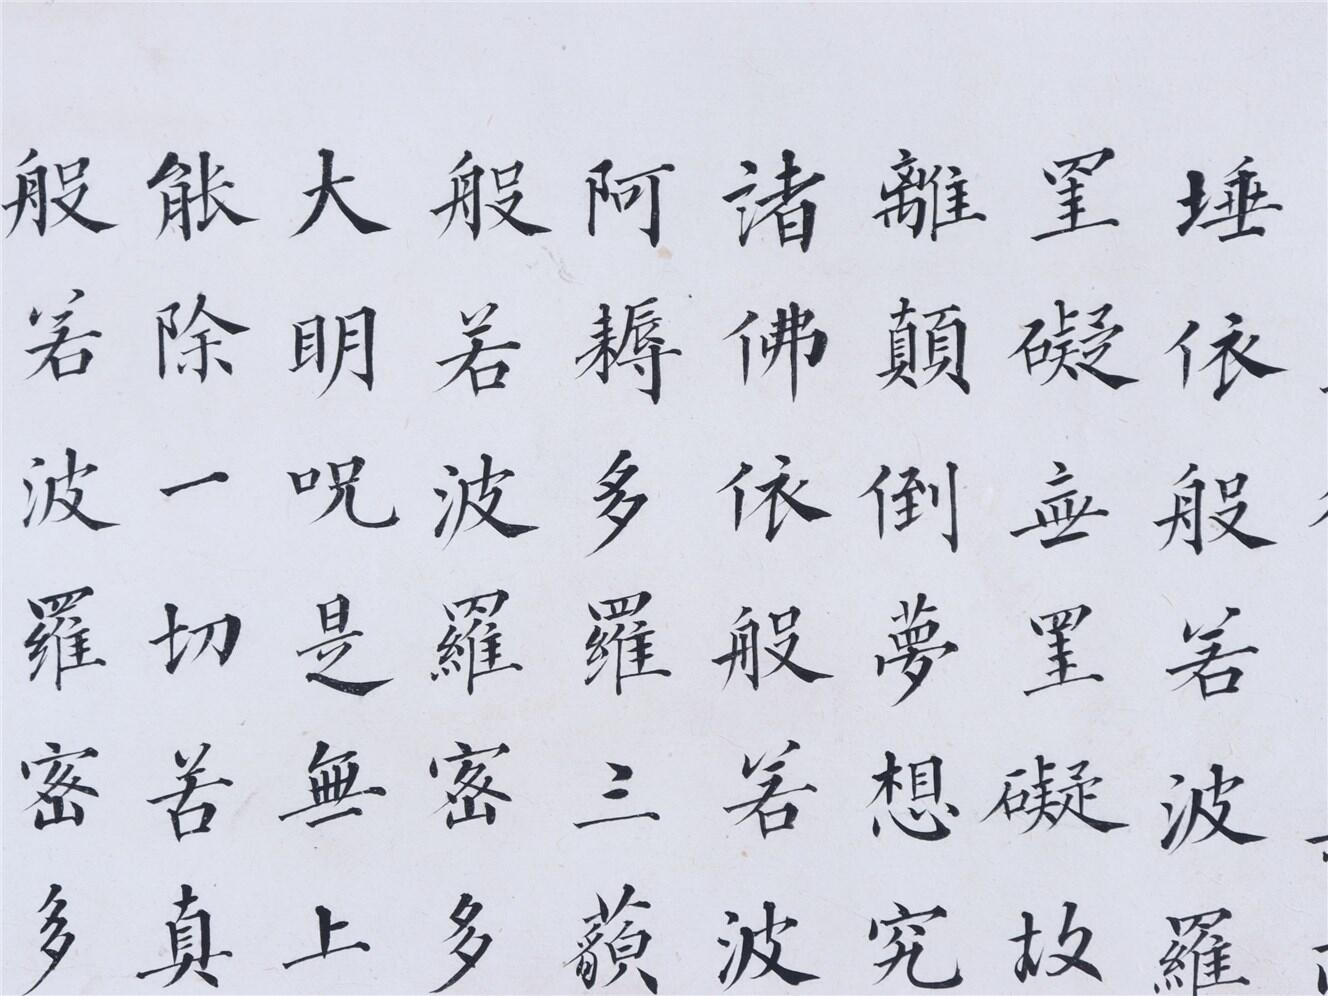 埵依般若波羅
罣礙無罣礙故
離顛倒夢想究
諸佛依般若波
阿耨多羅三藐
般若波羅密多
大明呪是無上
能除一切苦真
般若波羅密多